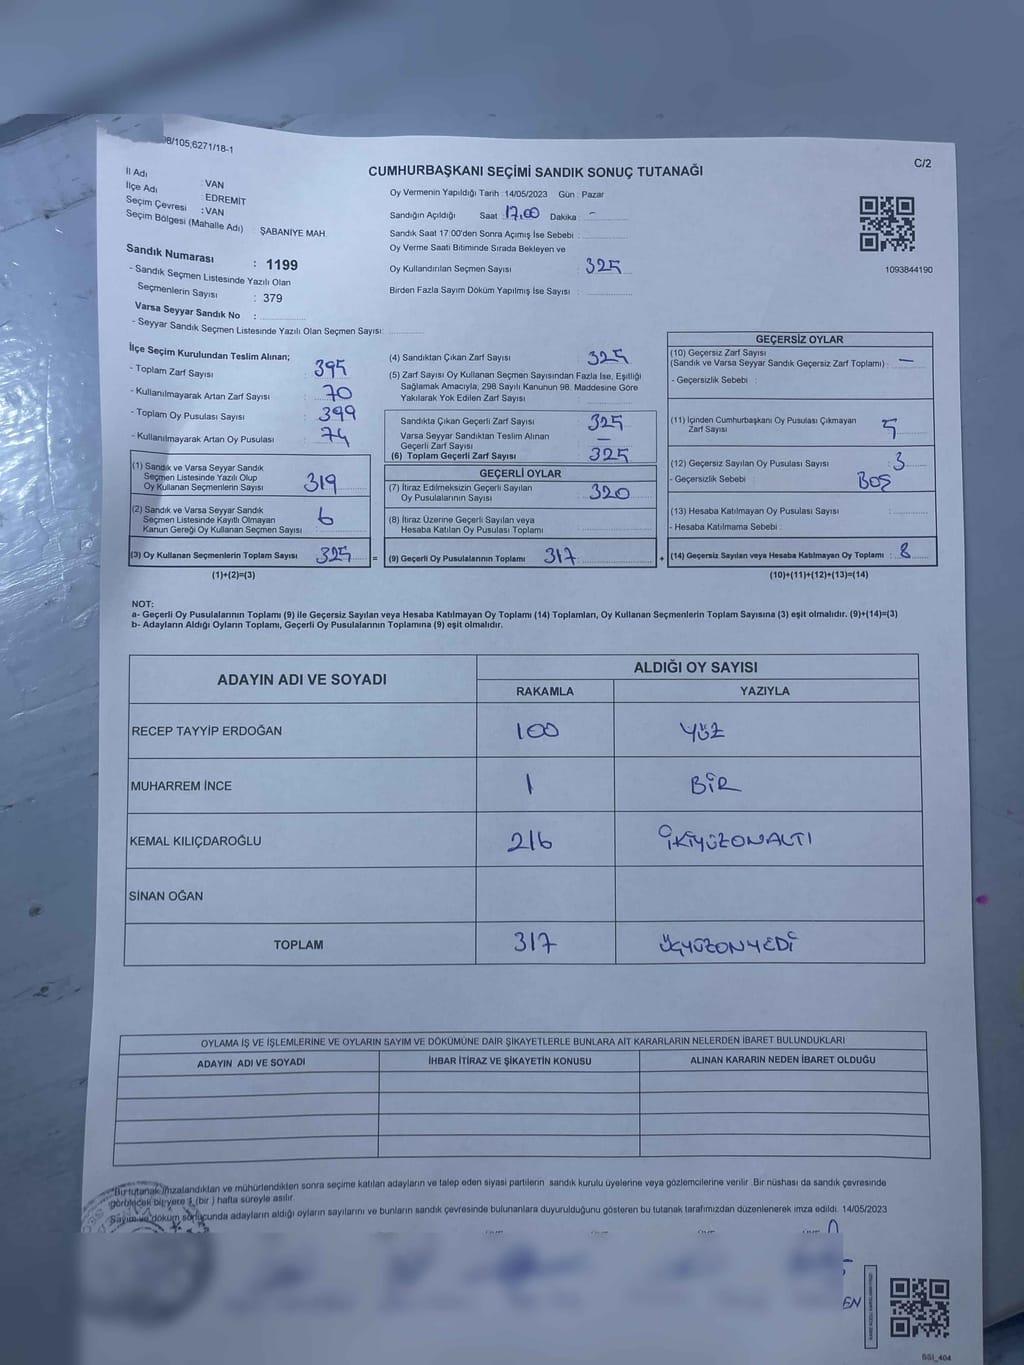 98/105,6271/18-1
C/2
CUMHURBAŞKANI SEÇİMİ SANDIK SONUÇ TUTANAĞI
İl Adı : VAN
İlçe Adı : EDREMİT
Seçim Çevresi : VAN
Seçim Bölgesi (Mahalle Adı) : ŞABANİYE MAH.
Sandık Numarası : 1199
- Sandık Seçmen Listesinde Yazılı Olan
Seçmenlerin Sayısı : 379
Varsa Seyyar Sandık No :
- Seyyar Sandık Seçmen Listesinde Yazılı Olan Seçmen Sayısı:
Oy Vermenin Yapıldığı Tarih : 14/05/2023 Gün : Pazar
Sandığın Açıldığı Saat : 17.00 Dakika : -
Sandık Saat 17:00'den Sonra Açımış İse Sebebi :
Oy Verme Saati Bitiminde Sırada Bekleyen ve
Oy Kullandırılan Seçmen Sayısı : 325
Birden Fazla Sayım Döküm Yapılmış İse Sayısı :
1093844190
İlçe Seçim Kurulundan Teslim Alınan;
- Toplam Zarf Sayısı : 395
- Kullanılmayarak Artan Zarf Sayısı : 70
- Toplam Oy Pusulası Sayısı : 399
- Kullanılmayarak Artan Oy Pusulası : 74
(1) Sandık ve Varsa Seyyar Sandık
Seçmen Listesinde Yazılı Olup
Oy Kullanan Seçmenlerin Sayısı : 319
(2) Sandık ve Varsa Seyyar Sandık
Seçmen Listesinde Kayıtlı Olmayan
Kanun Gereği Oy Kullanan Seçmen Sayısı : 6
(3) Oy Kullanan Seçmenlerin Toplam Sayısı : 325 =
(1)+(2)=(3)
(4) Sandıktan Çıkan Zarf Sayısı : 325
(5) Zarf Sayısı Oy Kullanan Seçmen Sayısından Fazla İse, Eşitliği
Sağlamak Amacıyla, 298 Sayılı Kanunun 98. Maddesine Göre
Yakılarak Yok Edilen Zarf Sayısı :
Sandıkta Çıkan Geçerli Zarf Sayısı : 325
Varsa Seyyar Sandıktan Teslim Alınan
Geçerli Zarf Sayısı : -
(6) Toplam Geçerli Zarf Sayısı : 325
GEÇERLİ OYLAR
(7) İtiraz Edilmeksizin Geçerli Sayılan
Oy Pusulalarının Sayısı : 320
(8) İtiraz Üzerine Geçerli Sayılan veya
Hesaba Katılan Oy Pusulası Toplamı :
(9) Geçerli Oy Pusulalarının Toplamı : 317 +
GEÇERSİZ OYLAR
(10) Geçersiz Zarf Sayısı
(Sandık ve Varsa Seyyar Sandık Geçersiz Zarf Toplamı) : -
- Geçersizlik Sebebi :
(11) İçinden Cumhurbaşkanı Oy Pusulası Çıkmayan
Zarf Sayısı : 5
(12) Geçersiz Sayılan Oy Pusulası Sayısı : 3
- Geçersizlik Sebebi : BOŞ
(13) Hesaba Katılmayan Oy Pusulası Sayısı :
- Hesaba Katılmama Sebebi :
(14) Geçersiz Sayılan veya Hesaba Katılmayan Oy Toplamı : 8
(10)+(11)+(12)+(13)=(14)
NOT:
a- Geçerli Oy Pusulalarının Toplamı (9) ile Geçersiz Sayılan veya Hesaba Katılmayan Oy Toplamı (14) Toplamları, Oy Kullanan Seçmenlerin Toplam Sayısına (3) eşit olmalıdır. (9)+(14)=(3)
b- Adayların Aldığı Oyların Toplamı, Geçerli Oy Pusulalarının Toplamına (9) eşit olmalıdır.
ADAYIN ADI VE SOYADI
ALDIĞI OY SAYISI
RAKAMLA YAZIYLA
RECEP TAYYİP ERDOĞAN 100 YÜZ
MUHARREM İNCE 1 BİR
KEMAL KILIÇDAROĞLU 216 İKİYÜZONALTI
SİNAN OĞAN
TOPLAM 317 ÜÇYÜZONYEDİ
OYLAMA İŞ VE İŞLEMLERİNE VE OYLARIN SAYIM VE DÖKÜMÜNE DAİR ŞİKAYETLERLE BUNLARA AİT KARARLARIN NELERDEN İBARET BULUNDUKLARI
ADAYIN ADI VE SOYADI İHBAR İTİRAZ VE ŞİKAYETİN KONUSU ALINAN KARARIN NEDEN İBARET OLDUĞU
Bu tutanak imzalandıktan ve mühürlendikten sonra seçime katılan adayların ve talep eden siyasi partilerin sandık kurulu üyelerine veya gözlemcilerine verilir. Bir nüshası da sandık çevresinde
görülecek bir yere 1 (bir ) hafta süreyle asılır.
Sayım ve döküm sonucunda adayların aldığı oyların sayılarını ve bunların sandık çevresinde bulunanlara duyurulduğunu gösteren bu tutanak tarafımızdan düzenlenerek imza edildi. 14/05/2023
EN
SSI_404